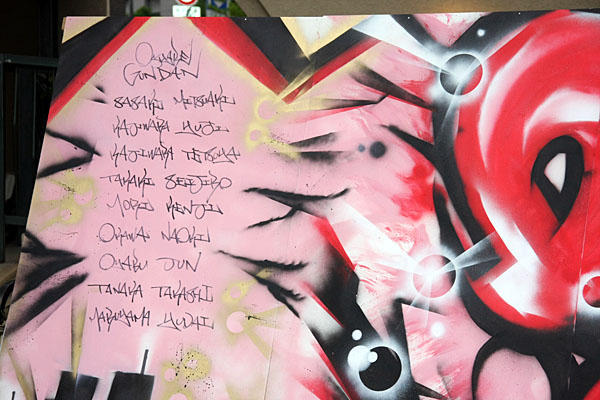 GUNDAN
SASAKI MITSUAKI
KAJIWARA YUJI
KAJIWARA
TAKAKI SEIJIRO
MORI KENJI
OKAWA NAOKI
OHAKU JUN
TANAKA TAKASHI
MARUYAMA YUDAI